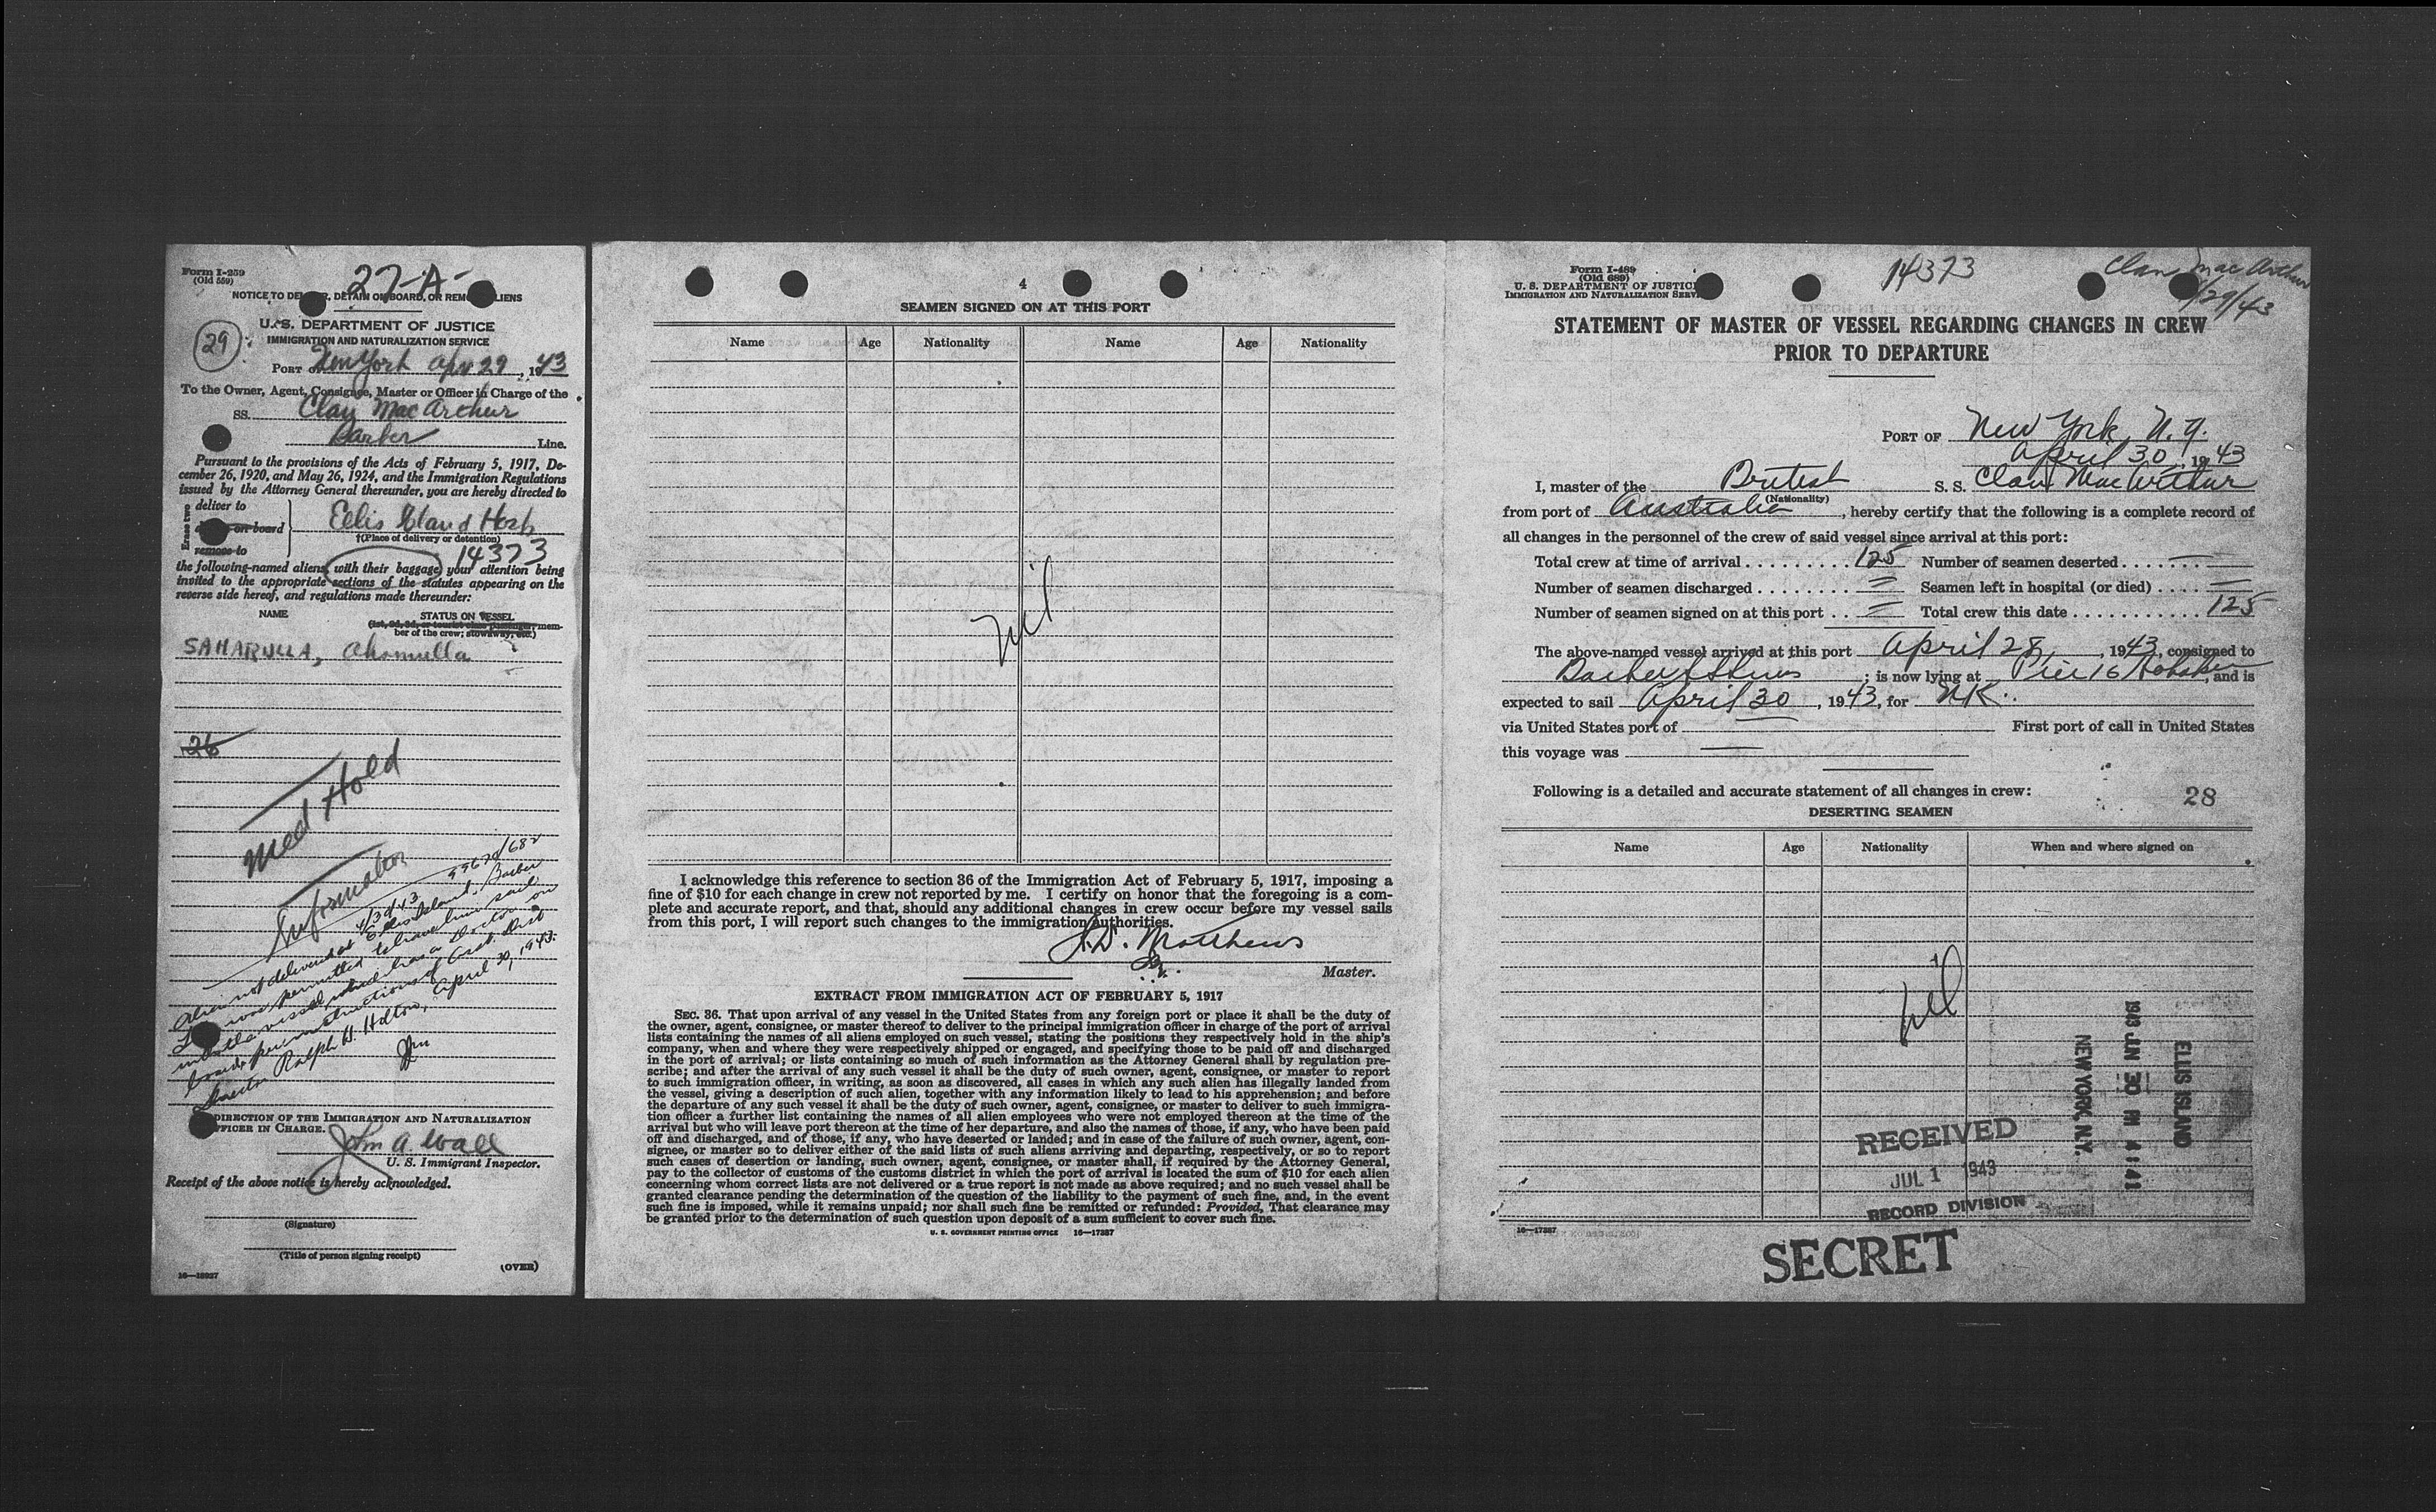 Form I-259
(Old 559)
27-A-
NOTICE TO DETAIN ON BOARD, OR REMOVE ALIENS
U. S. DEPARTMENT OF JUSTICE
IMMIGRATION AND NATURALIZATION SERVICE
29
PORT of New York Apr 29, 1943
To the Owner, Agent, Consignee, Master or Officer in Charge of the
SS. Clan MacArthur
Barber Line.
Pursuant to the provisions of the Acts of February 5, 1917, De-
cember 26, 1920, and May 26, 1924, and the Immigration Regulations
issued by the Attorney General thereunder, you are hereby directed to
Erase two
deliver to
on board
remove to
Ellis Island Hosp
†(Place of delivery or detention)
14373
the following-named aliens, with their baggage, your attention being
invited to the appropriate sections of the statutes appearing on the
reverse side hereof, and regulations made thereunder:
NAME
STATUS ON VESSEL
(1st, 2d, 3d, or tourist class passenger; mem-
ber of the crew; stowaway, etc.)
SAHARULLA, Ahamulla
26
Med Hold
Information
99670/682
4/30/43
Alien not delivered at Ellis Island. Barber
was permitted to have him sail
on the vessel which has a Doctor on
board, per instructions of Asst. Dist
Director Ralph H. Holton, April 30, 1943.
DIRECTION OF THE IMMIGRATION AND NATURALIZATION
OFFICER IN CHARGE.
John A. Wall
U. S. Immigrant Inspector.
Receipt of the above notice is hereby acknowledged.
(Signature)
(Title of person signing receipt)
(OVER)
4
SEAMEN SIGNED ON AT THIS PORT
Name Age Nationality Name Age Nationality
Nil
I acknowledge this reference to section 36 of the Immigration Act of February 5, 1917, imposing a
fine of $10 for each change in crew not reported by me. I certify on honor that the foregoing is a com-
plete and accurate report, and that, should any additional changes in crew occur before my vessel sails
from this port, I will report such changes to the immigration authorities.
J.D. Matthews
Master.
EXTRACT FROM IMMIGRATION ACT OF FEBRUARY 5, 1917
SEC. 36. That upon arrival of any vessel in the United States from any foreign port or place it shall be the duty of
the owner, agent, consignee, or master thereof to deliver to the principal immigration officer in charge of the port of arrival
lists containing the names of all aliens employed on such vessel, stating the positions they respectively hold in the ship's
company, when and where they were respectively shipped or engaged, and specifying those to be paid off and discharged
in the port of arrival; or lists containing so much of such information as the Attorney General shall by regulation pre-
scribe; and after the arrival of any such vessel it shall be the duty of such owner, agent, consignee, or master to report
to such immigration officer, in writing, as soon as discovered, all cases in which any such alien has illegally landed from
the vessel, giving a description of such alien, together with any information likely to lead to his apprehension; and before
the departure of any such vessel it shall be the duty of such owner, agent, consignee, or master to deliver to such immigra-
tion officer a further list containing the names of all alien employees who were not employed thereon at the time of the
arrival but who will leave port thereon at the time of her departure, and also the names of those, if any, who have been paid
off and discharged, and of those, if any, who have deserted or landed; and in case of the failure of such owner, agent, con-
signee, or master so to deliver either of the said lists of such aliens arriving and departing, respectively, or so to report
such cases of desertion or landing, such owner, agent, consignee, or master shall, if required by the Attorney General,
pay to the collector of customs of the customs district in which the port of arrival is located the sum of $10 for each alien
concerning whom correct lists are not delivered or a true report is not made as above required; and no such vessel shall be
granted clearance pending the determination of the question of the liability to the payment of such fine, and, in the event
such fine is imposed, while it remains unpaid; nor shall such fine be remitted or refunded: Provided, That clearance may
be granted prior to the determination of such question upon deposit of a sum sufficient to cover such fine.
U. S. GOVERNMENT PRINTING OFFICE 16—17387
Form I-489
(Old 689)
U. S. DEPARTMENT OF JUSTICE
IMMIGRATION AND NATURALIZATION SERVICE
14373
Clan MacArthur
4/29/43
STATEMENT OF MASTER OF VESSEL REGARDING CHANGES IN CREW
PRIOR TO DEPARTURE
PORT OF New York, N.Y.
April 30, 1943
I, master of the British S. S. Clan MacArthur
(Nationality)
from port of Australia, hereby certify that the following is a complete record of
all changes in the personnel of the crew of said vessel since arrival at this port:
Total crew at time of arrival . . . . . . . . . 125 Number of seamen deserted . . . . . . . —
Number of seamen discharged . . . . . . . = Seamen left in hospital (or died) . . . . =
Number of seamen signed on at this port . . = Total crew this date . . . . . . . . . . . 125
The above-named vessel arrived at this port April 28, 1943, consigned to
Barber S S Lines; is now lying at Pier 16 Hoboken, and is
expected to sail April 30, 1943, for UK.
via United States port of First port of call in United States
this voyage was —
Following is a detailed and accurate statement of all changes in crew:
28
DESERTING SEAMEN
Name Age Nationality When and where signed on
Nil
ELLIS ISLAND
1943 JUN 30 PM 4 41
NEW YORK, N.Y.
RECEIVED
JUL 1 1943
RECORD DIVISION
16—17387
SECRET